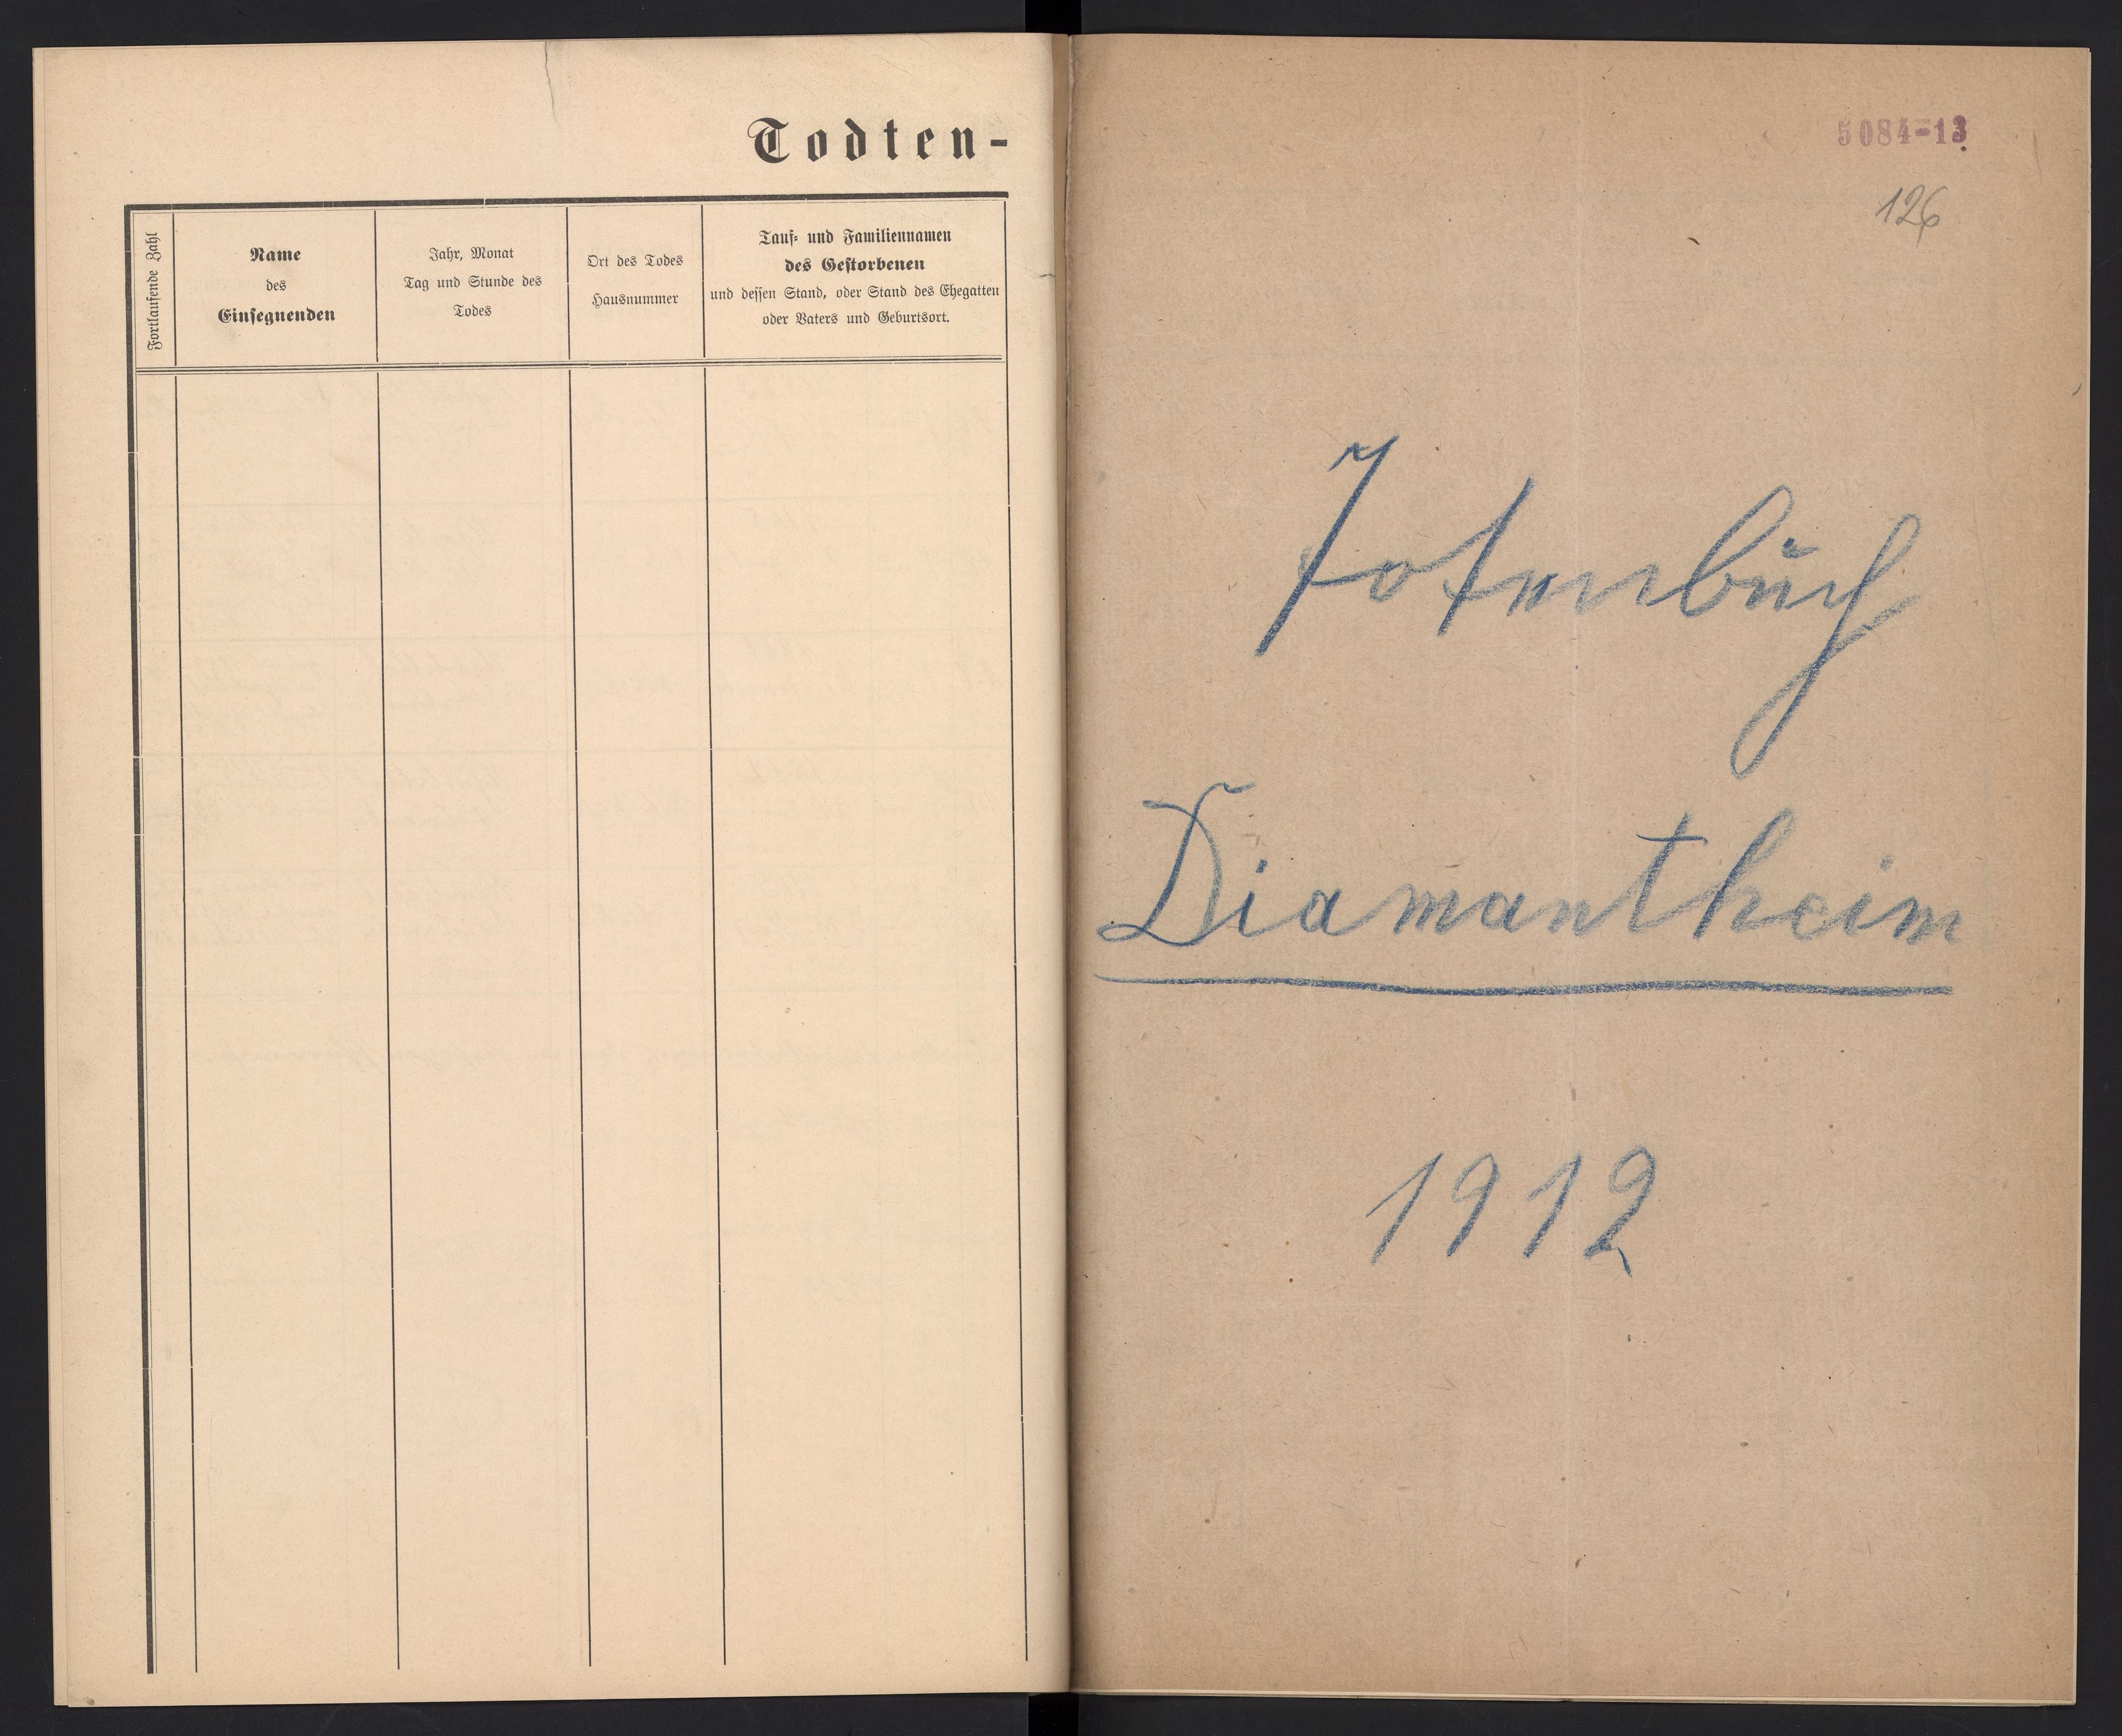 Todten-
Fortlaufende Zahl
Name
des
Einsegnenden
Jahr, Monat
Tag und Stunde des
Todes
Ort des Todes
Hausnummer
Tauf- und Familiennamen
des Gestorbenen
und dessen Stand, oder Stand des Ehegatten
oder Vaters und Geburtsort.
5084-13
126
Totenbuch
Diamantheim
1912